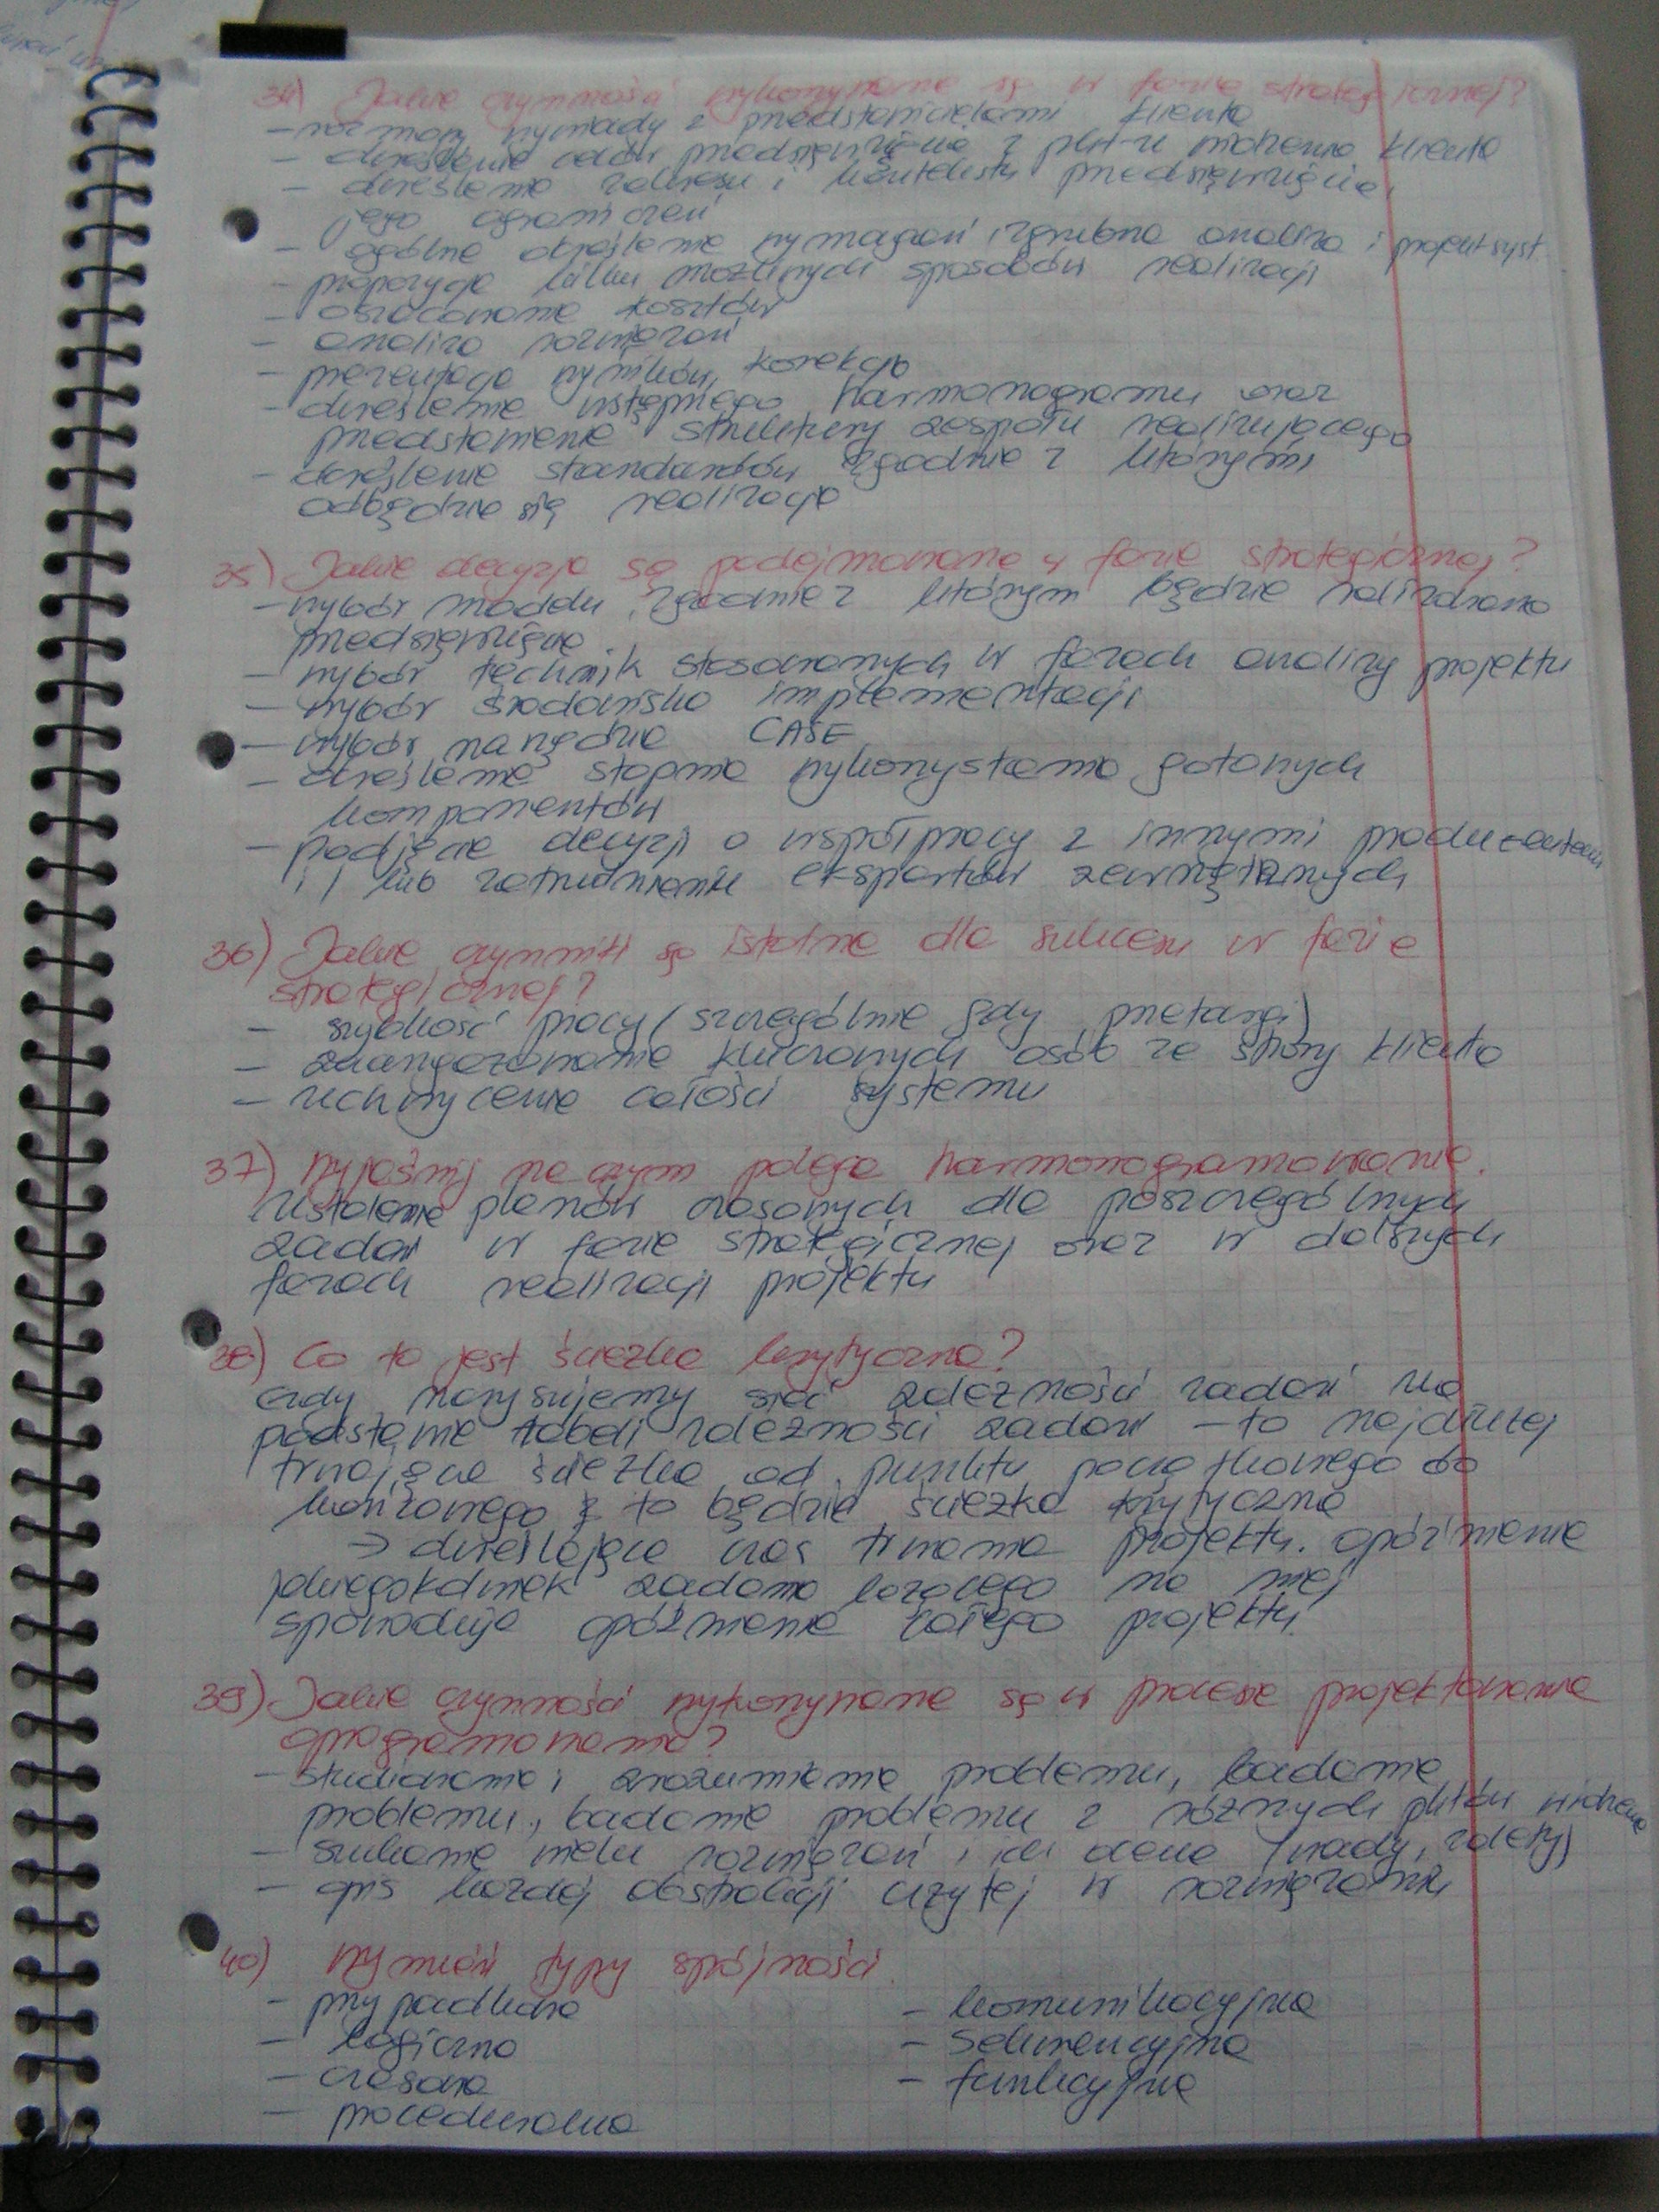 34) Jakie czynności wykonywane są w fazie strategicznej?
- rozmowy wywiady z przedstawicielami klienta
- określenie celów przedsięwzięcia z pkt-u widzenia klienta
- określenie zakresu i kontekstu przedsięwzięcia,
jego ograniczeń
- ogólne określenie wymagań, zgrubna analiza i projekt syst.
- propozycja kilku możliwych sposobów realizacji
- oszacowanie kosztów
- analiza rozwiązań
- prezentacja wyników, korekcja
- określenie wstępnego harmonogramu oraz
przedstawienie struktury zespołu realizującego
- określenie standardów zgodnie z którymi
odbędzie się realizacja
35) Jakie decyzje są podejmowane w fazie strategicznej?
- wybór modelu, zgodnie z którym będzie realizowane
przedsięwzięcie
- wybór technik stosowanych w fazach analizy projektu
- wybór środowiska implementacji
- wybór narzędzia CASE
- określenie stopnia wykorzystania gotowych
komponentów
- podjęcie decyzji o współpracy z innymi producentami
i / lub zatrudnieniu ekspertów zewnętrznych
36) Jakie czynniki są istotne dla sukcesu w fazie
strategicznej?
- szybkość pracy (szczególnie gdy przetargi)
- zaangażowanie kluczowych osób ze strony klienta
- uchwycenie całości systemu
37) Wyjaśnij na czym polega harmonogramowanie.
Ustalenie planów czasowych dla poszczególnych
zadań w fazie strategicznej oraz w dalszych
fazach realizacji projektu
38) Co to jest ścieżka krytyczna?
Gdy narysujemy sieć zależności zadań na
podstawie tabeli zależności zadań - to najdłużej
trwająca ścieżka od punktu początkowego do
końcowego to będzie ścieżka krytyczna
→ określająca czas trwania projektu. opóźnienie
jakiegokolwiek zadania leżącego na niej
spowoduje opóźnienie całego projektu.
39) Jakie czynności wykonywane są w procesie projektowania
oprogramowania?
- studiowanie i zrozumienie problemu, badanie
problemu, badanie problemu z różnych pktów widzenia
- szukanie wielu rozwiązań i ich ocena (wady, zalety)
- opis każdej abstrakcji użytej w rozwiązaniu
40) Wymień typy spójności.
- przypadkowa
- logiczna
- czasowa
- proceduralna
- komunikacyjna
- sekwencyjna
- funkcyjna